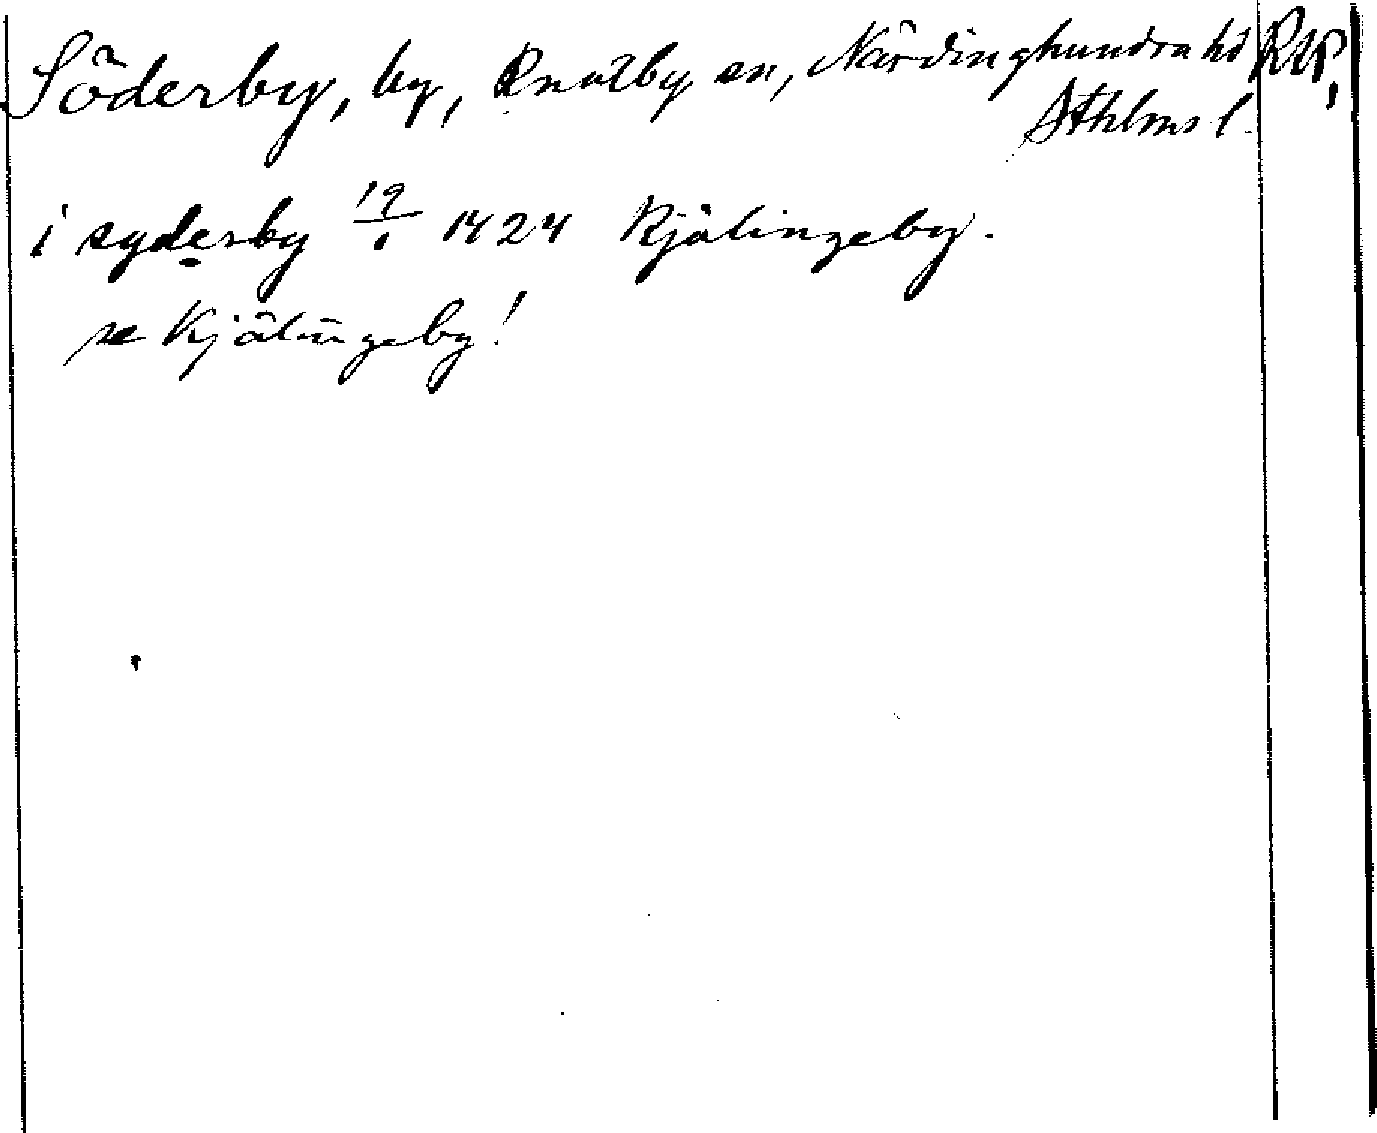 Söderby, by, Knutby sn, Närdinghundra hd
Sthlms l.
i syderby 19/1 1424 Kjälingeby.
se Kjälingeby!